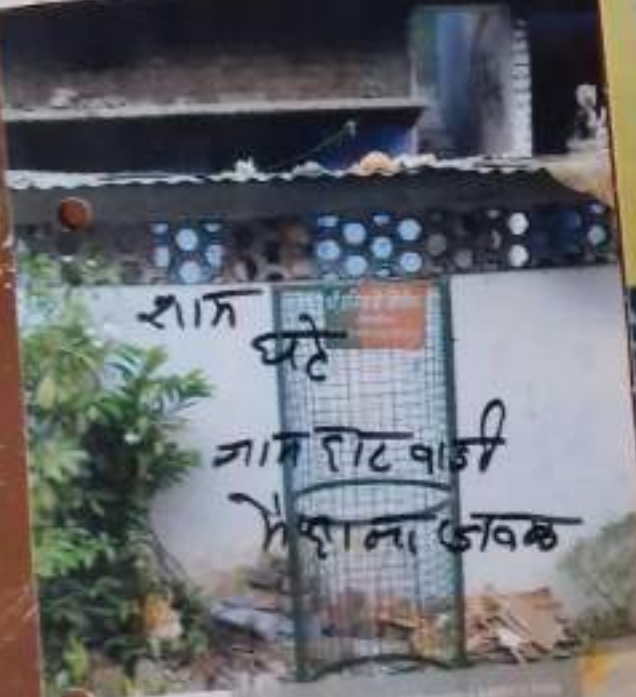 शाम
घटे
नाम हाट वाडी
मैदाना जवळ